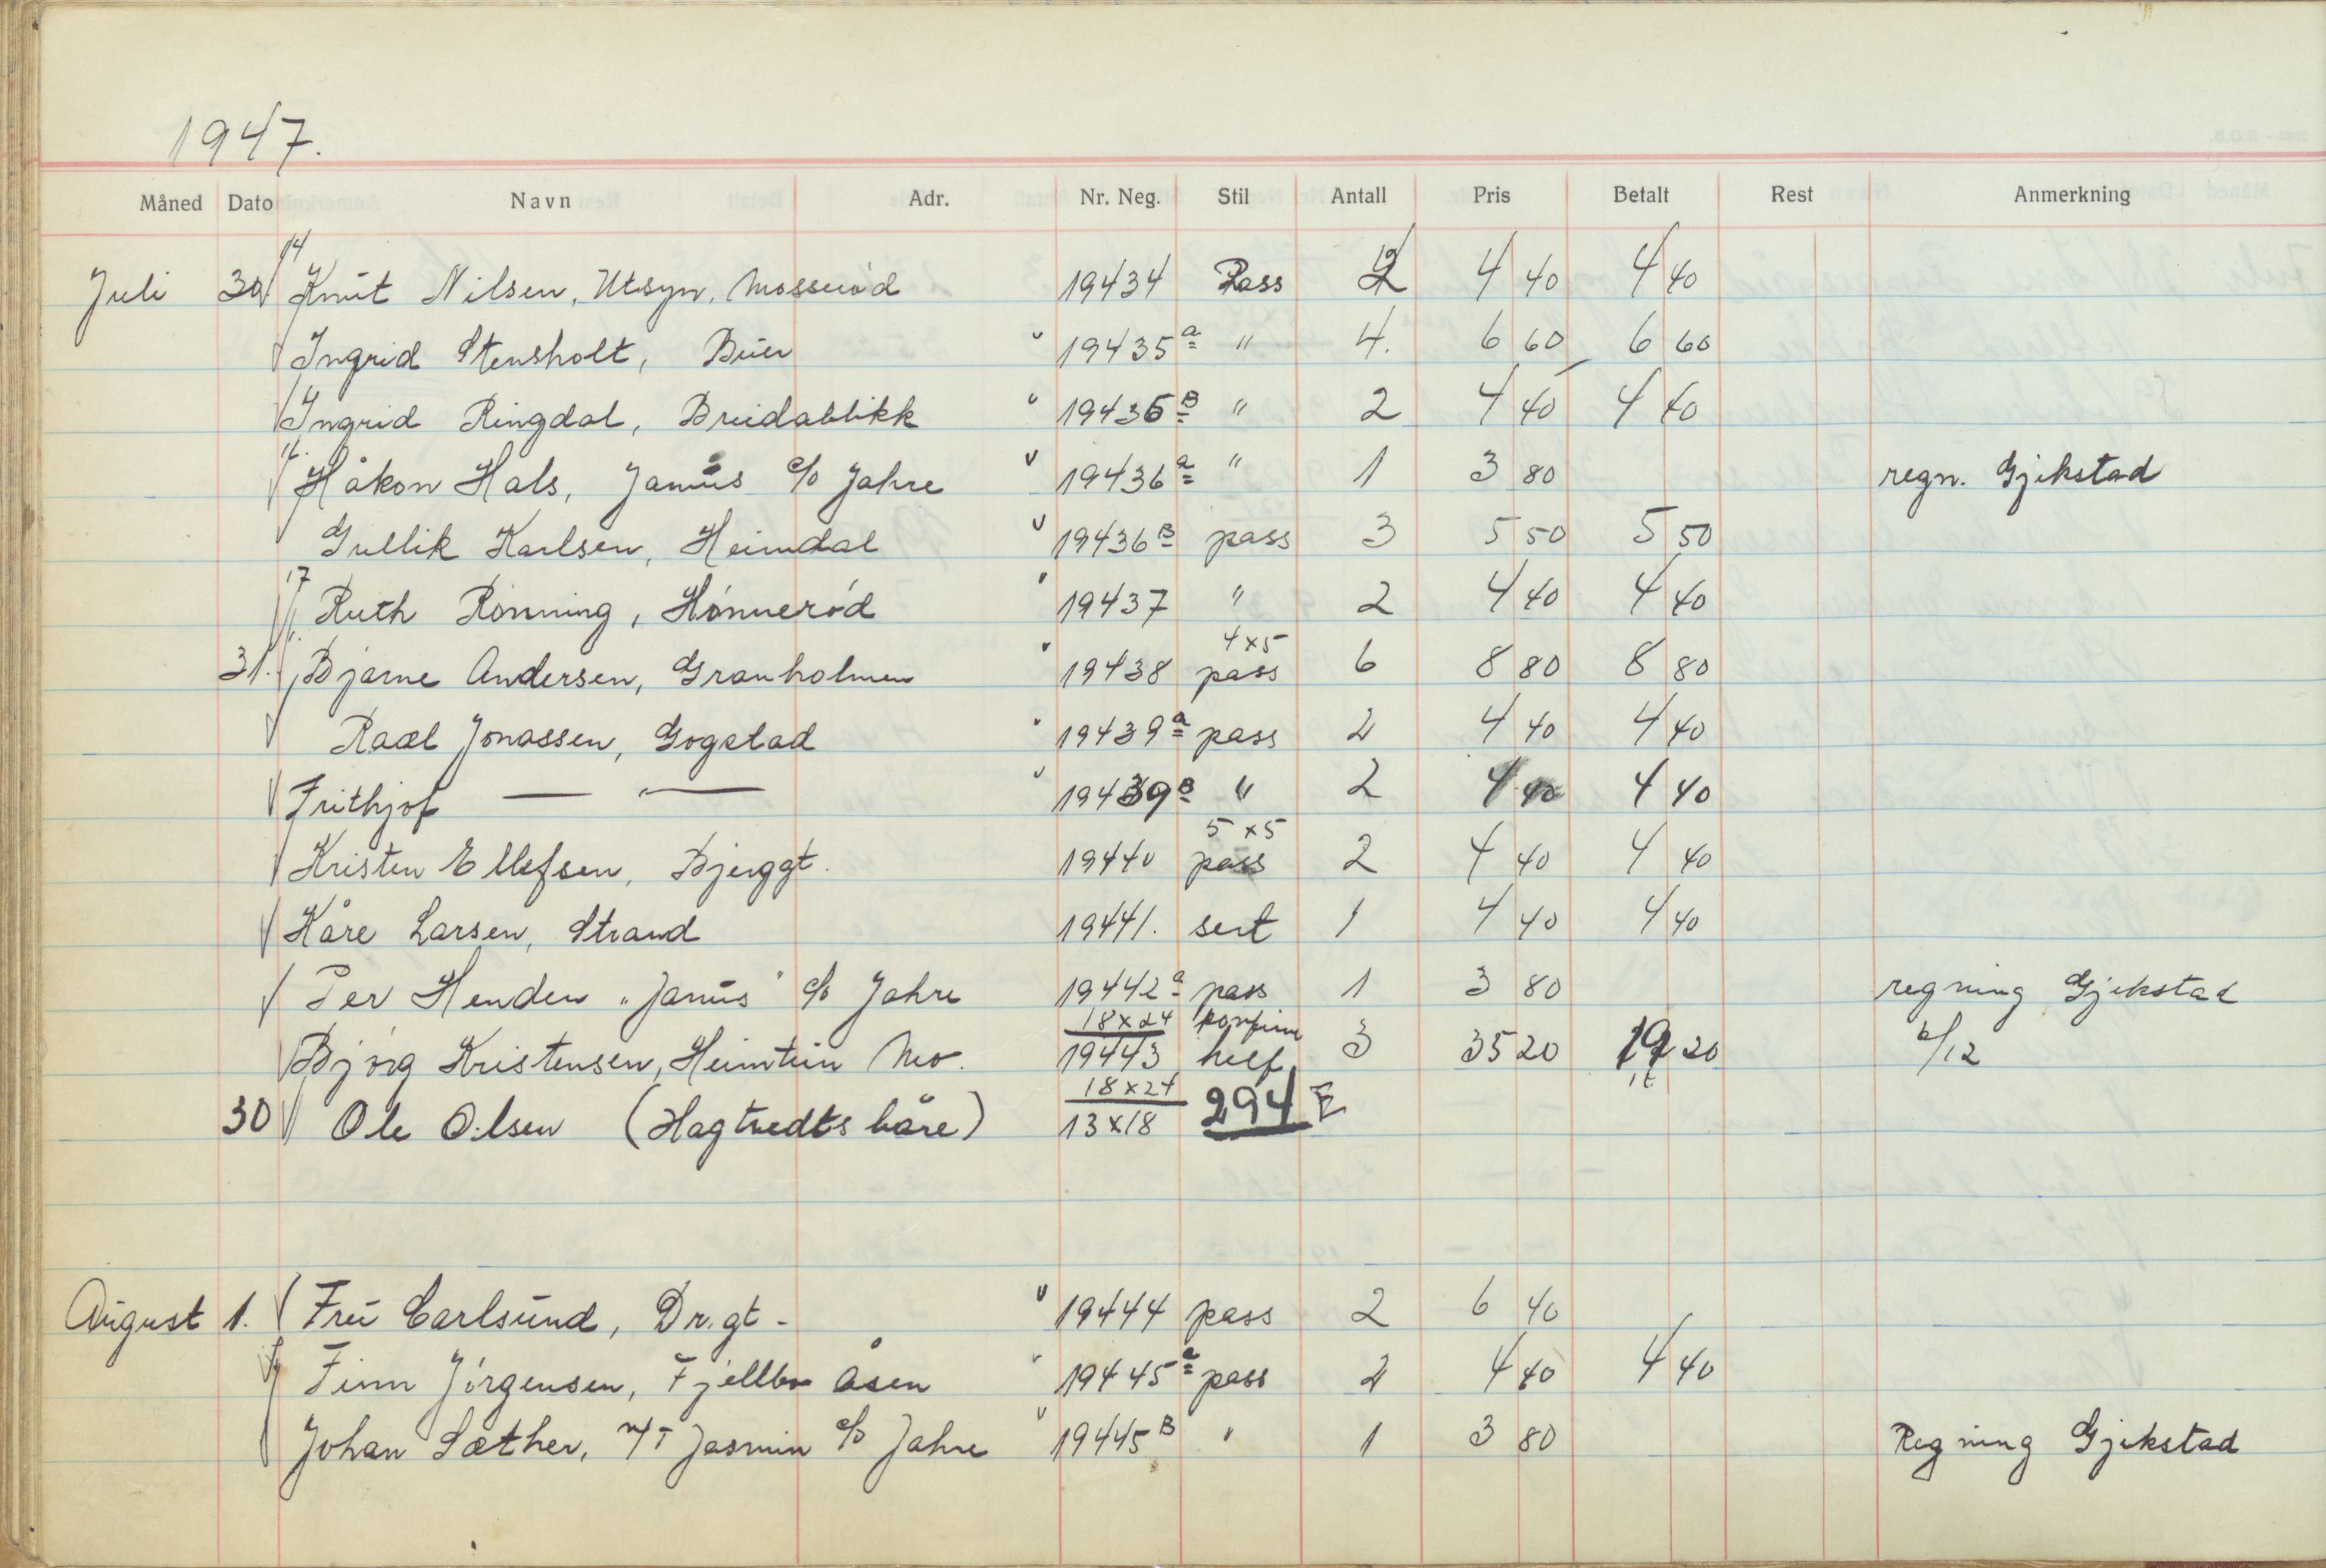 1947.
Måned Dato Navn Adr. Nr. Neg. Stil Antall Pris Betalt Rest Anmerkning
14
Juli 30 Knut Nilsen, Utsyn, Mosserød 19434 Pass 2 4 40 4 40
Ingrid Stensholt, Buer " 19435 a " 4. 6 60 6 60
Ingrid Ringdal, Breidablikk " 19435 B " 2 4 40 4 40
Håkon Hals, Janus c/o Jahre " 19436 a " 1 3 80 regn. Gjekstad
Gullik Karlsen, Heimdal " 19436 B pass 3 5 50 5 50
17
Ruth Rönning, Hönneröd " 19437 " 2 4 40 4 40
4x5
31. Bjarne Andersen, Granholmen " 19438 pass 6 8 80 8 80
Jonassen, Gogstad " 19439 a pass 2 4 40 4 40
Frithjof — " — " 19439 B " 2 4 40 4 40
5x5
Kristen Ellefsen, Bjerggt. 19440 pass 2 4 40 4 40
Kåre Larsen, Strand 19441. sert 1 4 40 4 40
Per Henden "Janus" c/o Jahre 19442 a pass 1 3 80 regning Gjekstad
18x24 konfirm
Bjørg Kristensen, Heimtun Mo. 19443 helf 3 35 20 19 20 /12
18x24
30 Ole Olsen (Hagtvedts båre) 13x18 294 E
August 1. Fru Carlsund, Dr.gt - " 19444 pass 2 6 40
Finn Jörgensen, Fjellbo åsen " 19445 a pass 2 4 40 4 40
Johan Sæther, M/T Jasmin c/o Jahre " 19445 B " 1 3 80 Regning Gjekstad